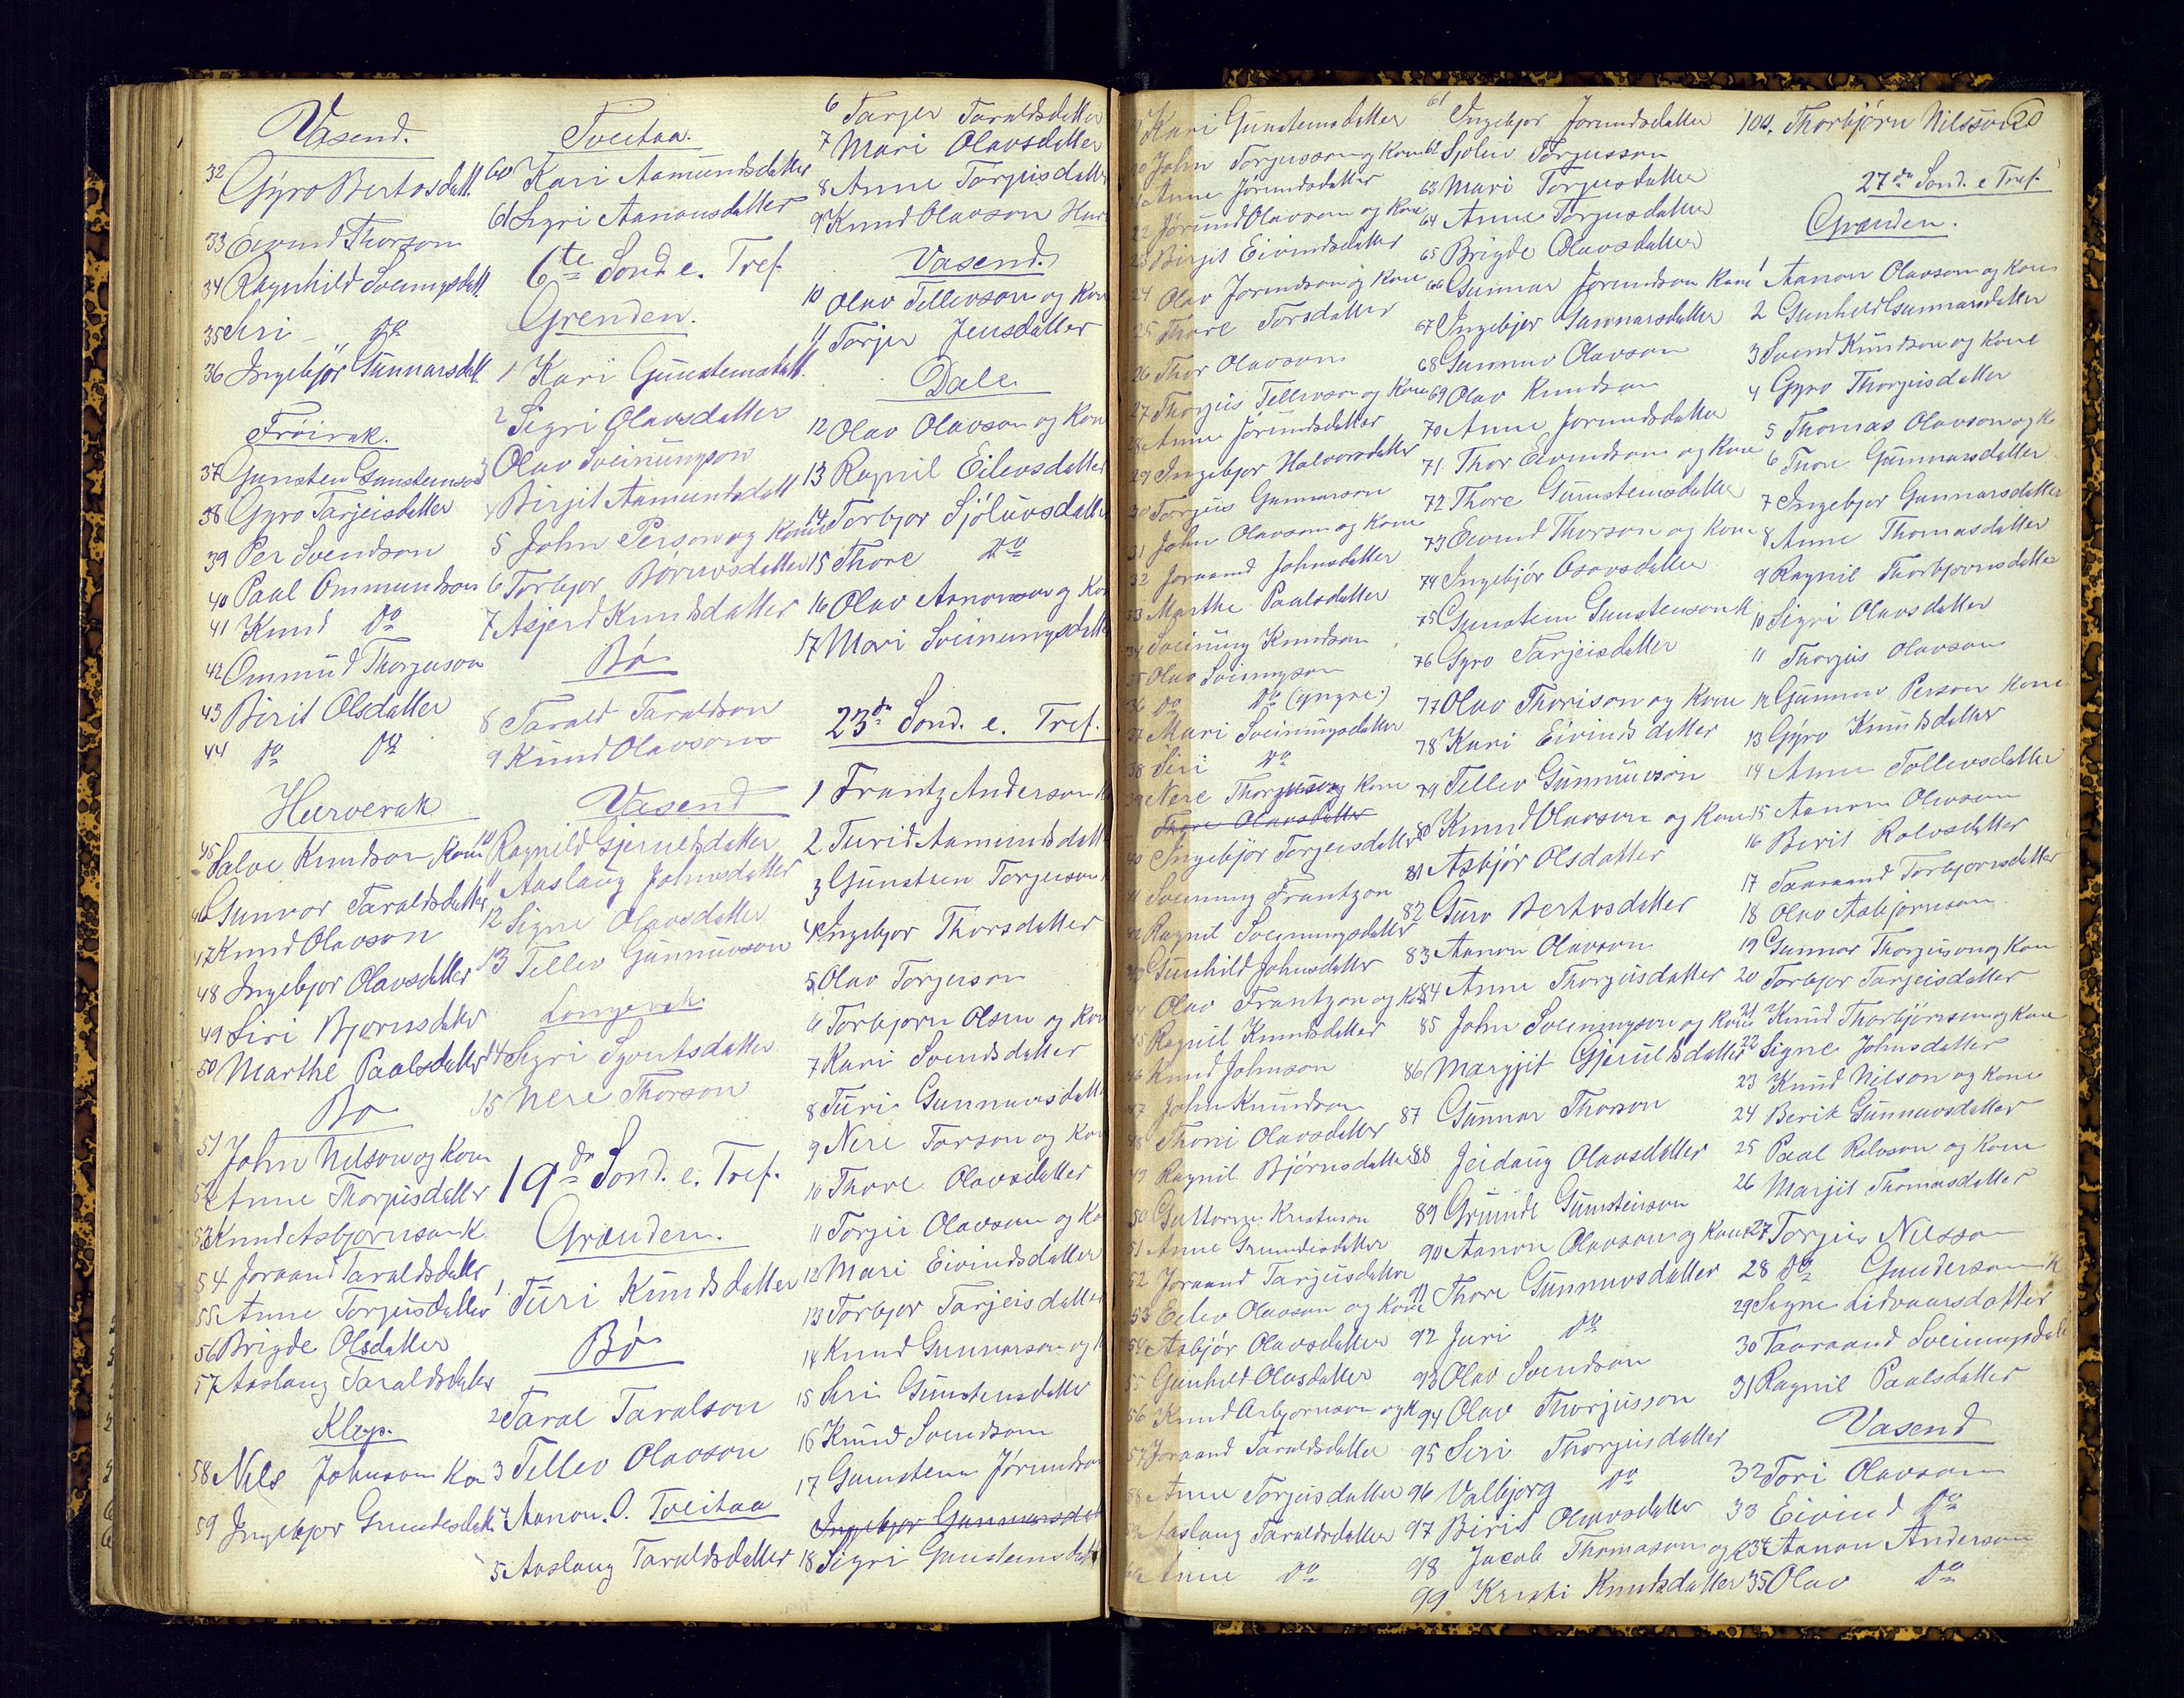 Vasend.
32 Gýro Bertosdatt.
33 Eivind Thorson
34 Ragnhild Sveinungsdatt.
35 Siri do
36 Ingebjör Gunnarsdatt.
Fröirak.
37 Gunsten Gunstenson
38 Gyro Tarjeisdatter
39 Per Svendson
40 Paal Ommundson
41 Knud do
42 Ommund Thorguson
43 Birit Olsdatter
44 do do
Hærverak
45 Salve Knudson Kone
46 Gunvor Taraldsdatter
47 Knud Olavson
48 Ingebjor Olavsdatter
49 Siri Bjornsdatter
50 Marthe Paalsdatter
Bö
51 John Nilson og Kone
52 Anne Thorgusdatter
53 Knud Asbjornson K
54 Joraand Taraldsdatter
55 Anne Torgusdatter
56 Brigde Olsdatter
57 Aaslaug Taraldsdatter
Klep.
58 Nils Johnson Kon
59 Ingebjor Grundesdatt
Tveitaa.
60 Kari Aamundsdatter
61 Sigri Aanonsdatter
6te Sond e. Tref.
Grenden.
1 Kari Gunstensdatt.
2 Sigri Olavsdatter
3 Olav Sveinungson
4 Birjit Aamundsdatt
5 John Person og Kone
6 Torbjor Börnvsdatter
7 Asjerd Knudsdatter
Bö
8 Tarald Taraldson
9 Knud Olavson
Vasend
10 Ragnild Gjeruldsdatter
11 Aaslaug Johnsdatter
12 Signe Olavsdatter
13 Tellev Gunnuvson
Longerak
14 Sigri Sgvutsdatter
15 Nere Thorson
19de Sond. e. Tref.
Grænden.
1 Turi Knudsdatter
Bö
2 Taral Taralson
3 Tellev Olavson
4 Aanon. O. Tveitaa
5 Aaslaug Taraldsdatter
6 Tarjer Taraldsdatter
7 Mari Olavsdatter
8 Anne Torjusdatter
9 Knud Olavson
Vasend.
10 Olav Tellevson og Kon
11 Torjer Jensdatter
Dale
12 Olav Olavson og Kon
13 Ragnil Eilevsdatter
14 Torbjor Sjöluvsdatter
15 Thore do
16 Olav Aanonson og Ko
17 Mari Sveinungsdatt
23de Sond. e. Tref.
1 Frantz Anderson K
2 Turid Aamundsdatt
3 Gunsten Torguson
4 Ingebjor Thorsdatter
5 Olav Torguson
6 Torbjorn Olsen og Kon
7 Kari Svendsdatter
8 Turi Gunnuvsdatt
9 Nere Torson og Kon
10 Thore Olavsdatter
11 Torgie Olavson og Ko
12 Mari Eivindsdatter
13 Torbjor Tarjeisdatter
14 Knud Gunnarson og K
15 Siri Gunstensdatter
16 Knud Svendson
17 Gunsten Jörundson
Ingebjor Gunnarsdat
18 Sigri Gunstensdat
19 Kari Gunstensdatter
20 John Torguson og Kone
21 Anne Jörundsdatter
22 Jörund Olavson og Kone
23 Birjit Eivindsdatter
24 Olav Jorundson og Kone
25 Thore Torsdatter
26 Thor Olavson
27 Thorgus Tellevson og Kone
28 Anne Jörundsdatter
29 Ingebjor Halvorsdatter
30 Torgus Gunnarson
31 John Olavson og Kone
32 Joraand Johnsdatter
33 Marthe Paalsdatter
34 Sveinung Knudson
35 Olav Sveinungson
36 do do (yngre.)
37 Mari Sveinungsdatter
38 Siri do
39 Nere Thorguson og Kone
Thore Olavsdatter
40 Ingebjör Torgeisdatter
41 Sveinung Frantzon
42 Ragnil Sveinungsdatter
43 Gunhild Johnsdatter
44 Olav Frantzon og Kon
45 Ragnil Knudsdatter
46 Knud Johnson
47 John Knudson
48 Thoni Olavsdatter
49 Ragnil Björnsdatter
50 Guttorm Kristenson
51 Anne Grundesdatter
52 Joraand Tarjusdatter
53 Eilev Olavson og Kone
54 Asbjör Olavsdatter
55 Gunhild Olavsdatter
56 Knud Asbjornson og K
57 Joraand Taraldsdatter
58 Anne Torgeisdatter
59 Aaslaug Taraldsdatter
60 Anne do
61 Ingebjor Jorundsdatter
62 Sjoluv Torgusson
63 Mari Torgusdatter
64 Anne Torgusdatter
65 Brigde Olavsdatter
66 Gunnar Jorundson Kone
67 Ingebjer Gunnarsdatter
68 Gunnuv Olavson
69 Olav Knudson
70 Anne Jorundsdatter
71. Thor Eivindson og Kone
72 Thore Gunstensdatter
73 Eivind Thorson og Kone
74 Ingebjör Osavsdatter
75 Gunsten Gunstenson K
76 Gyro Tarjeisdatter
77 Olav Thorison og Kone
78 Kari Eivindsdatter
79 Tellev Gunnuvson
80 Knud Olavson og Kone
81 Asbjör Olsdatter
82 Guro Bertosdatter
83 Aanon Olavson
84 Anne Thorgusdatter
85 John Sveinungson og Kone
86 Margjit Gjeruldsdatter
87 Gunnar Thorson
88 Jeidaug Olavsdatter
89 Grunde Gunstenson
90 Aanon Olavson og Kone
91 Thore Gunnuvsdatter
92 Juri do
93 Olav Svendson
94 Olav Thorjusson
95 Siri Thorjusdatter
96 Valbjorg do
97 Birit Olavsdatter
98 Jacob Thomason og K
99 Kristi Knudsdatter
100. Thorbjörn Nilsson
20
27de Sond. e Tref.
Grænden.
1 Aanon Olavson og Kone
2 Gunhild Gunnarsdatter
3 Svend Knudson og Kone
4 Gyro Thorgusdatter
5 Thomas Olavson og K
6 Thore Gunnarsdatter
7 Ingebjor Gunnarsdatter
8 Anne Thomasdatter
9 Ragnil Thorbjornsdatter
10 Sigri Olavsdatter
11 Thorgus Olavson
12 Gunnuv Person Kone
13 Gýro Knudsdatter
14 Anne Tollevsdatter
15 Aanon Olavson
16 Birit Rolvsdatter
17 Taaraand Torbjornsdatter
18 Olav Asbjörnson
19 Gunnar Thorguson og Kon
20 Torbjor Tarjeisdatter
21 Knud Thorbjörnson og Kone
22 Signe Johnsdatter
23 Knud Nilson og Kone
24 Berit Gunnuvsdatter
25 Paal Rolvson og Kone
26 Marjit Thomasdatter
27 Torjus Nilsson
28 do Gunderson K
29 Signe Lidvaarsdatter
30 Taaraand Sveinungsdatt
31 Ragnil Paalsdatter
Vasend
32 Tori Olavson
33 Eivind do
34 Aanon Anderson
35 Olav do